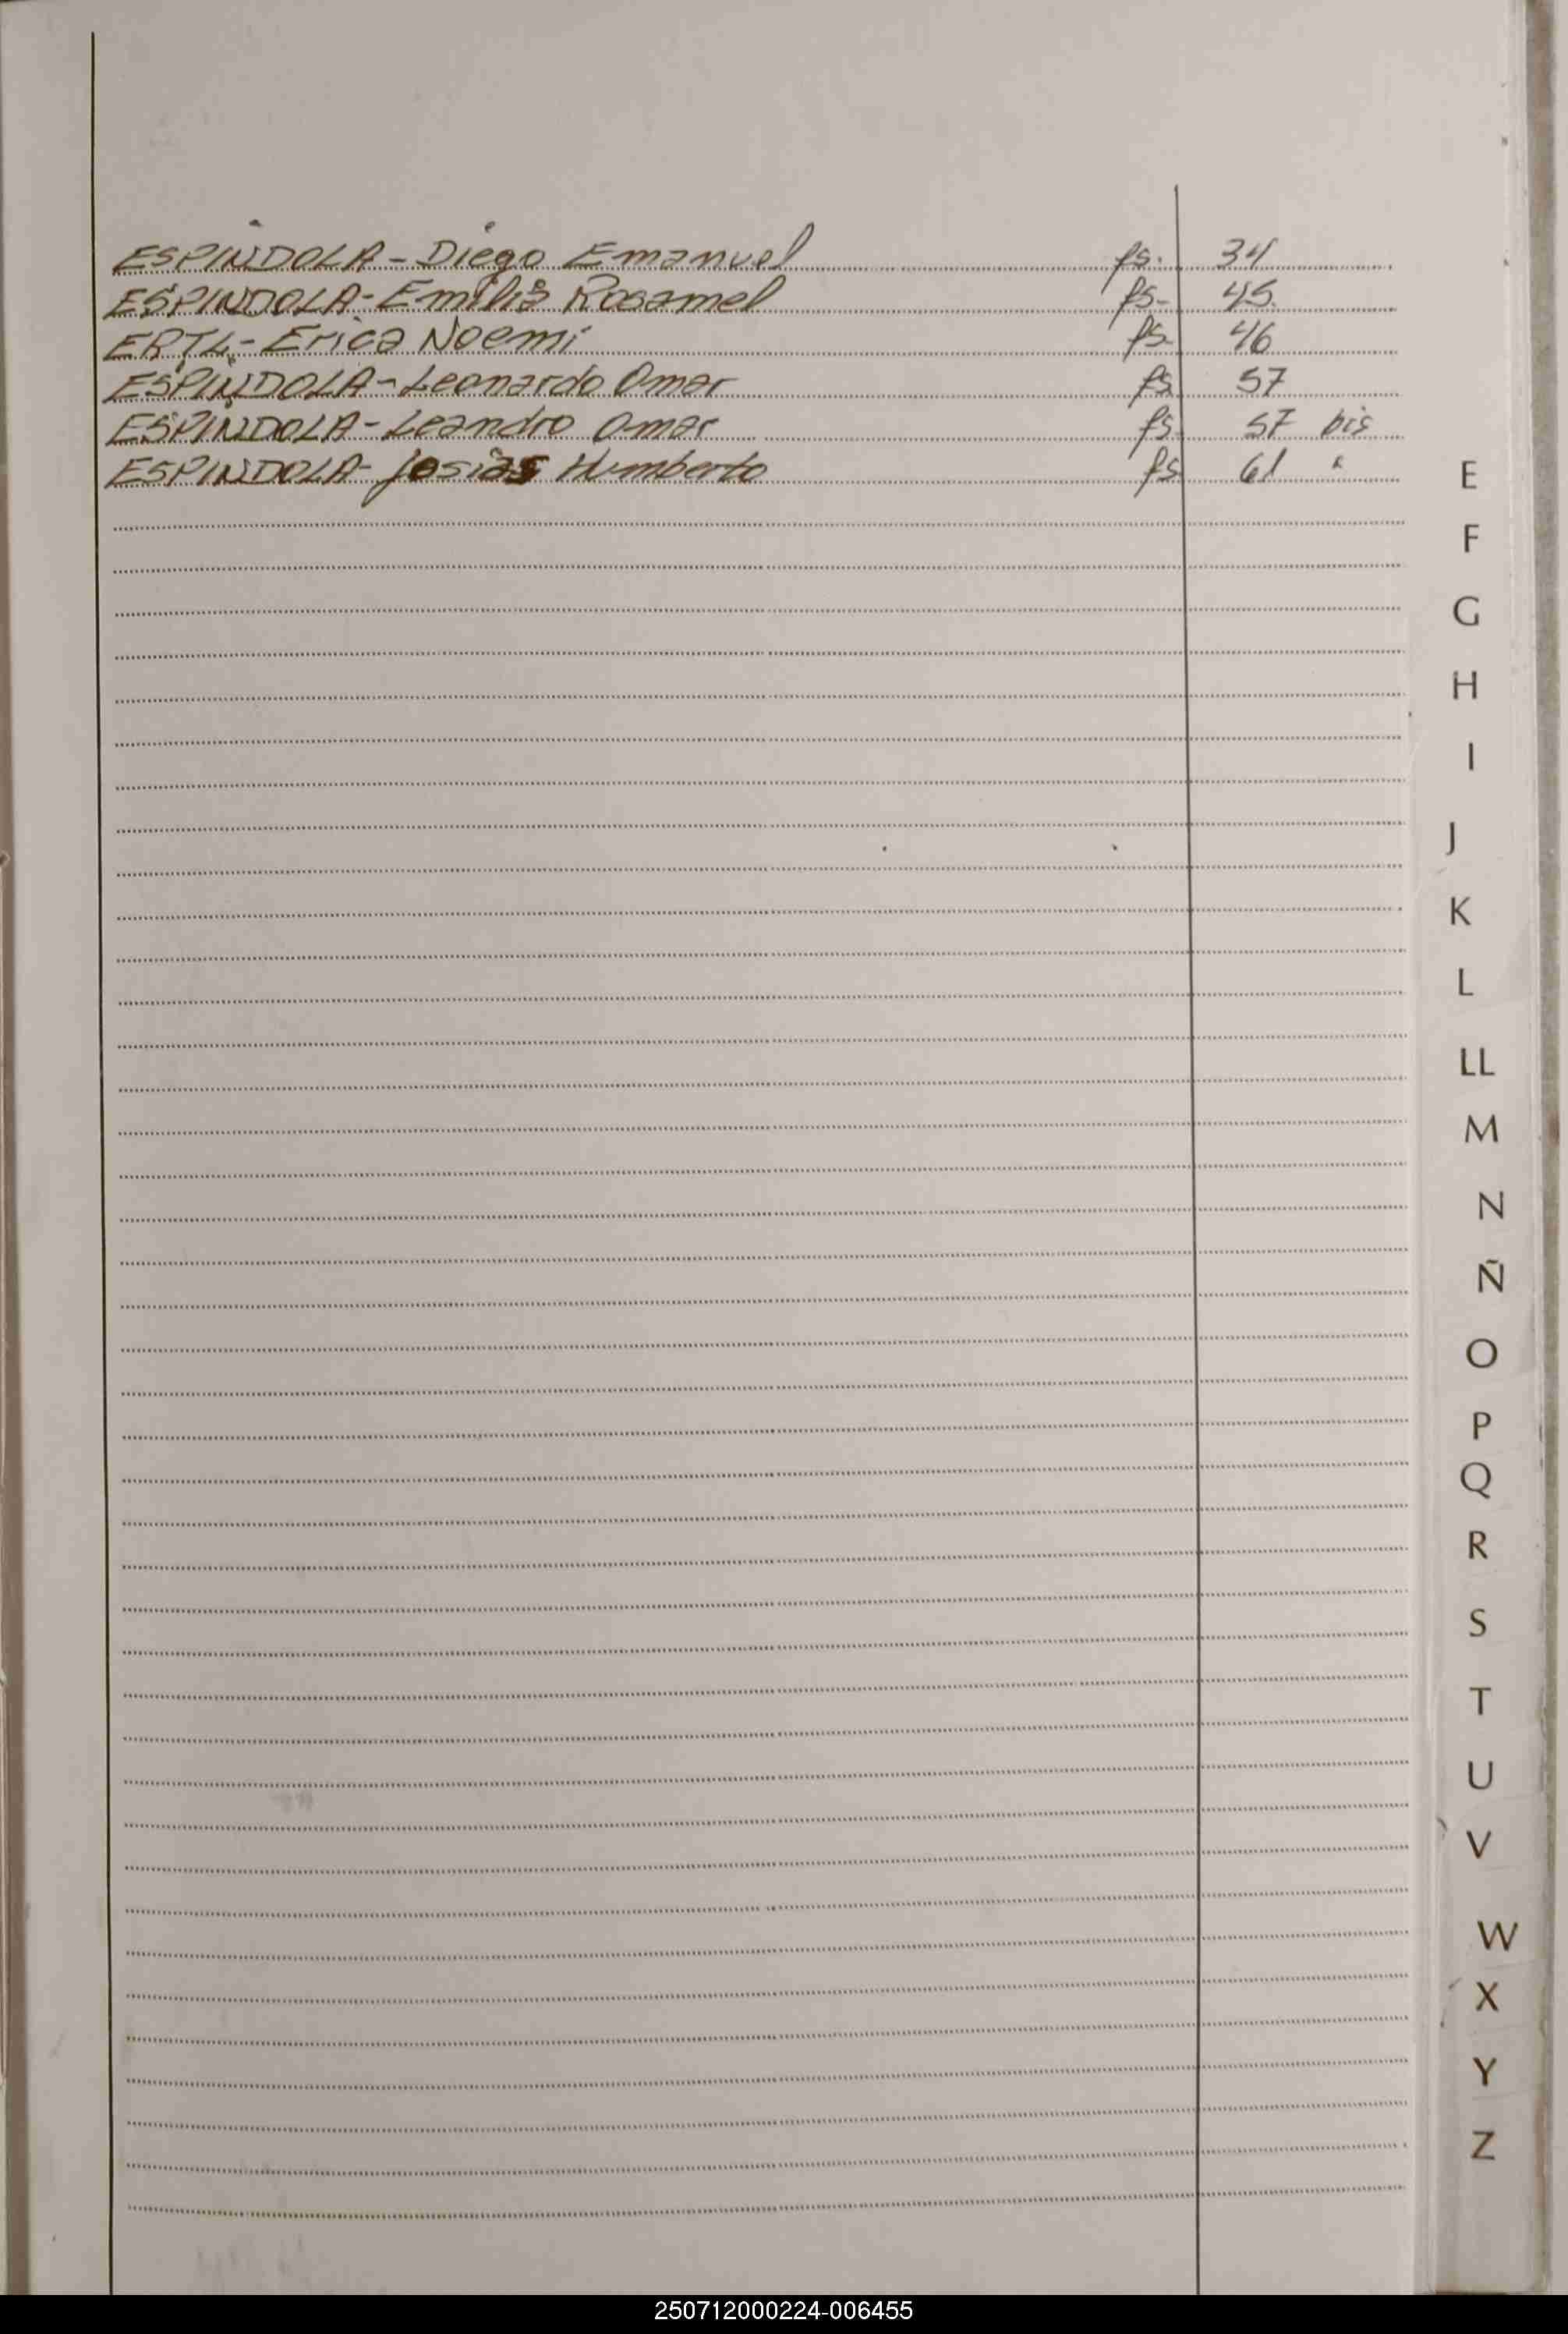 ESPINDOLA - Diego Emanuel fs. 34
ESPINDOLA - Emilia Rosamel fs- 45.
ERTL - Erica Noemi fs. 46
ESPINDOLA - Leonardo Omar fs. 57
ESPINDOLA - Leandro Omar fs. 57 bis
ESPINDOLA - Josias Humberto fs. 61 "
E
F
G
H
I
J
K
L
LL
M
N
Ñ
O
P
Q
R
S
T
U
V
W
X
Y
Z
250712000224-006455